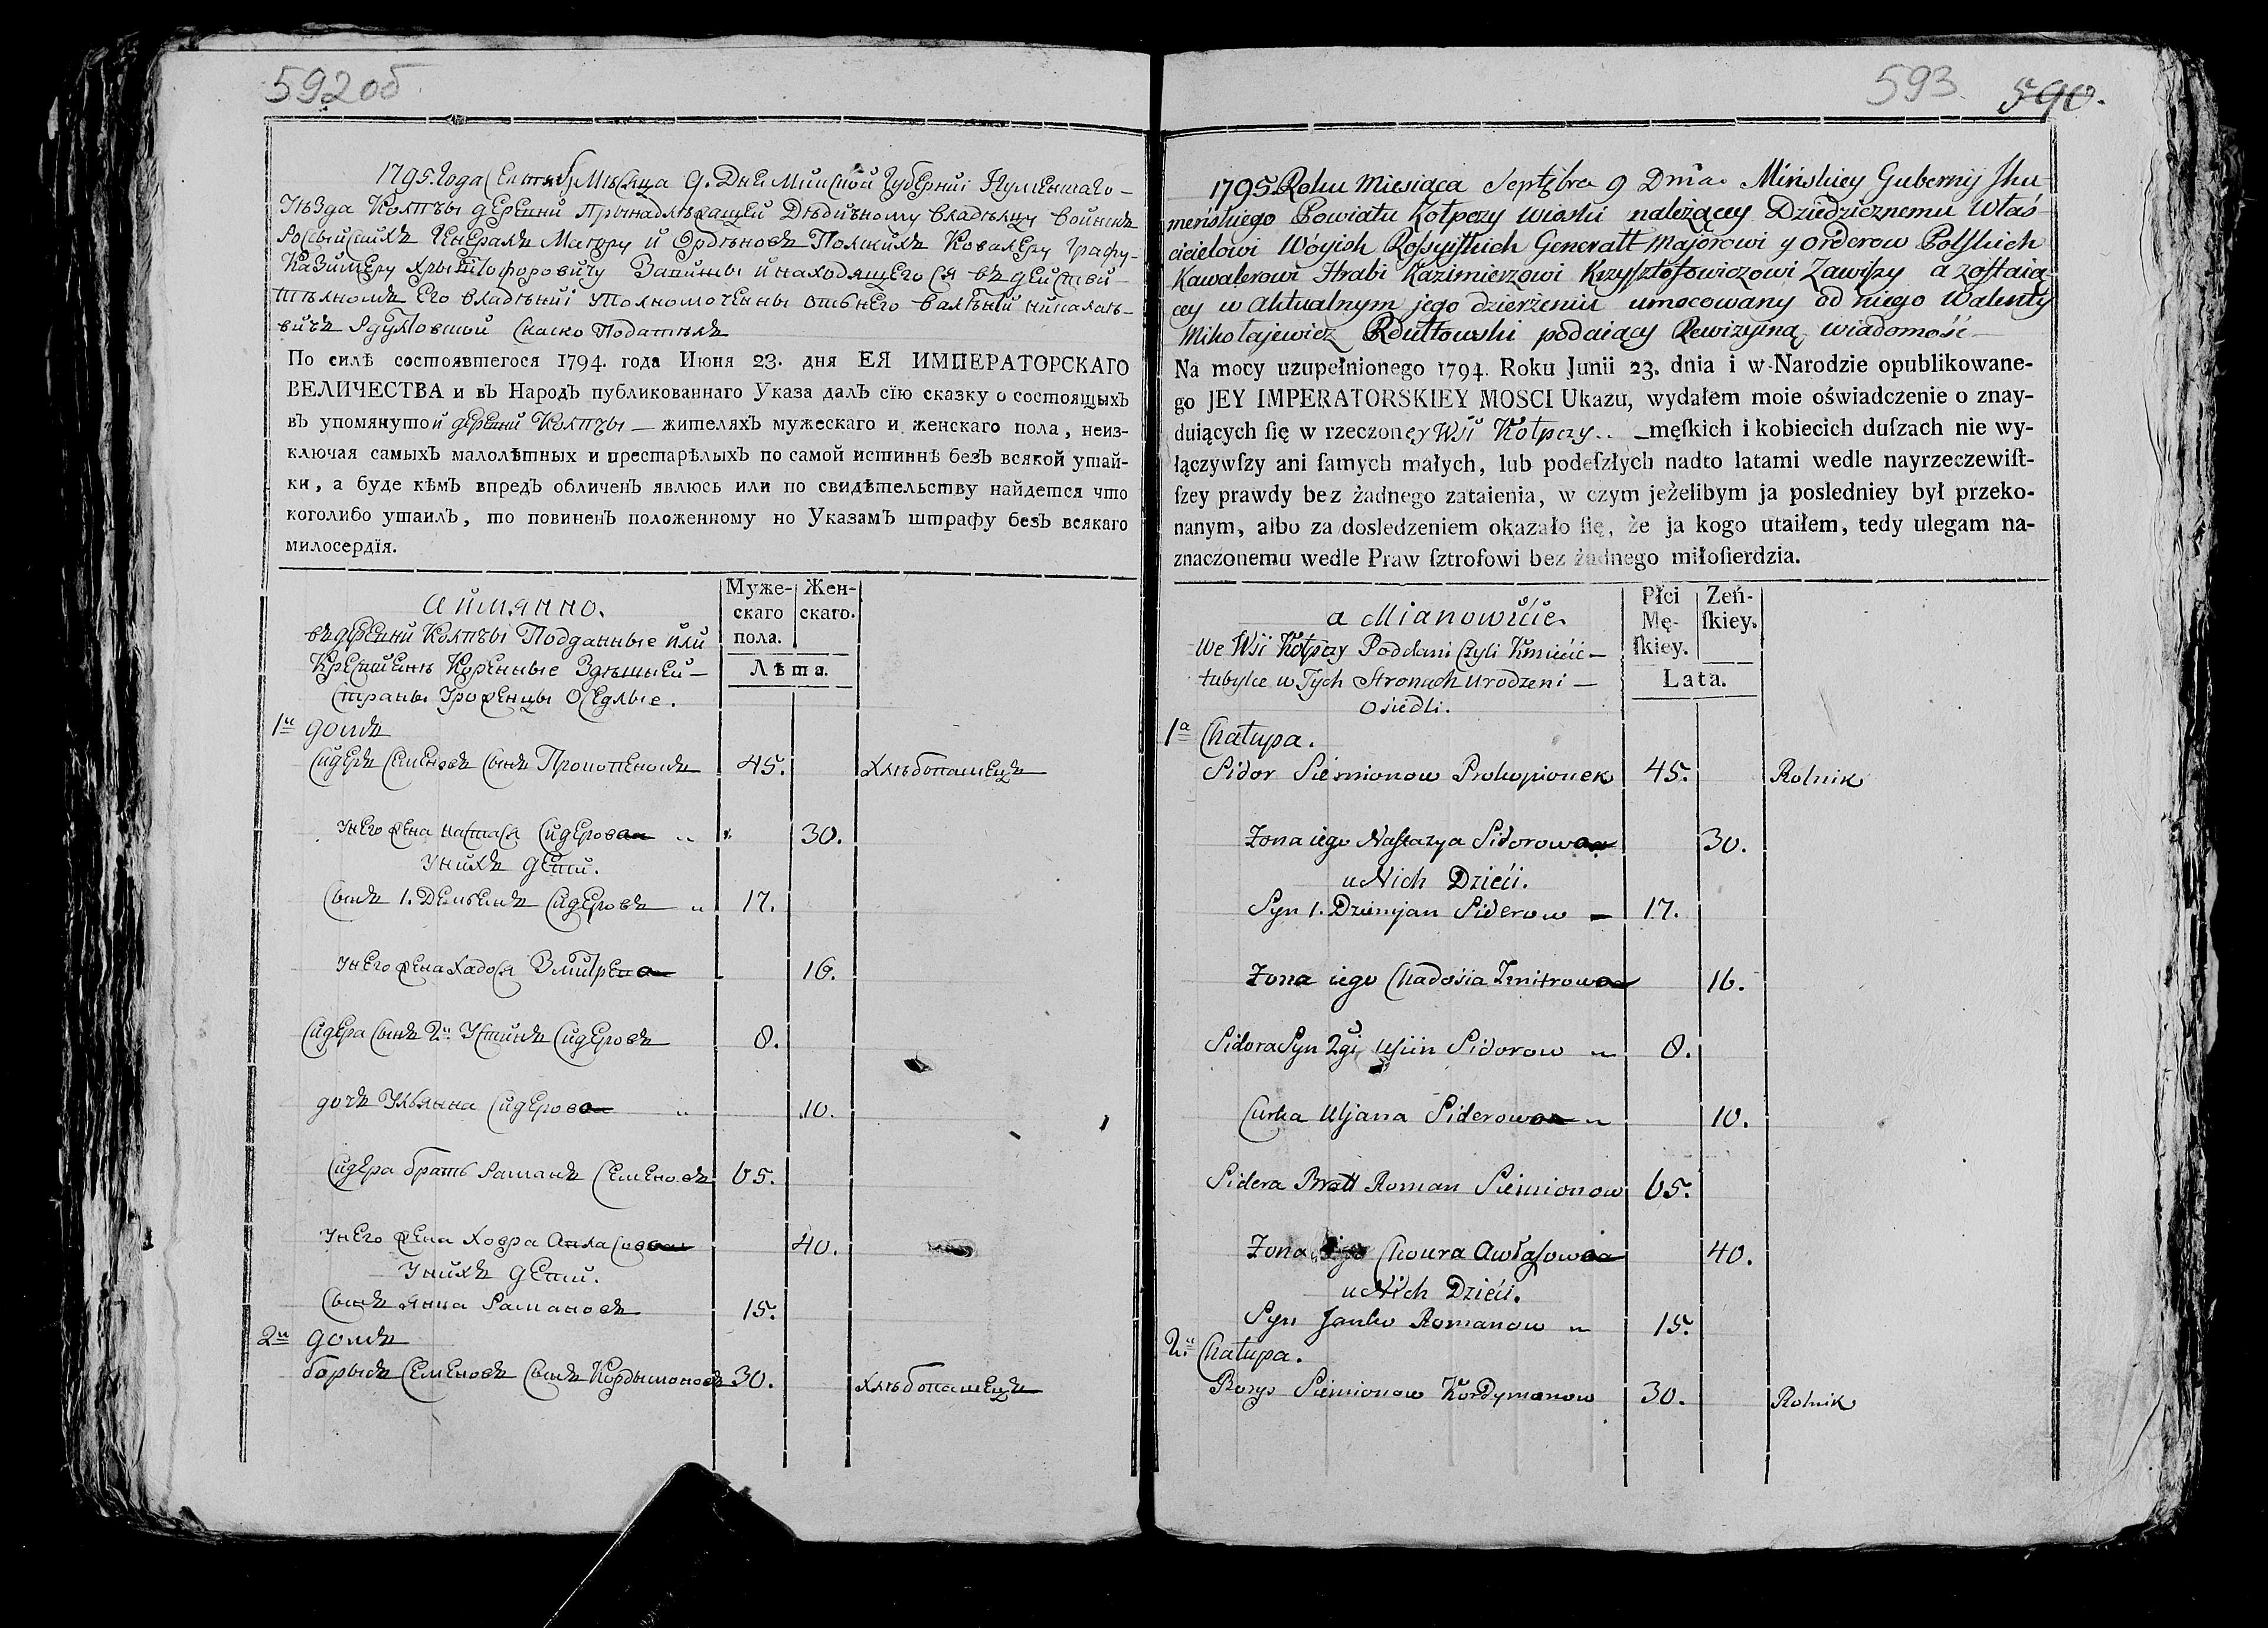 592об
1795. Года Сентяб. Мѣсяца 9. Дне Минской Губерний Игуменскаго
Уѣзда Колпъы деревни Принадлѣжащей Дѣдичному владѣлцу войскъ
Росыискихъ Генералъ Маеору и Орденовъ Полскихъ Ковалеру Графу
Казимеру Хрыштофоровичу Завишы и находящегося въ действи-
тѣлномъ его владѣнии уполномоченны отънего валѣнти николаѣ-
вичъ Рдултовский скаско Податѣль
По силѣ состоявшегося 1794. года Июня 23. дня ЕЯ ИМПЕРАТОРСКАГО
ВЕЛИЧЕСТВА и въ Народъ публикованнаго Указа далъ сїю сказку о состоящыхъ
въ упомянутой деревни Колпъы — жителяхъ мужескаго и женскаго пола, неиз-
ключая самыхъ малолѣтныхъ и престарѣлыхъ по самой истиннѣ безъ всякой утай-
ки, а буде кѣмъ впредъ обличенъ явлюсь или по свидѣтельству найдется что
коголибо утаилъ, то повиненъ положенному но Указамъ штрафу безъ всякаго
милосердїя.
а имянно.
Муже-
скаго
пола.
Жен-
скаго.
Лѣта.
въ деревни Колпъы Подданные или
Крестиянѣ Коренные Здѣшней
Страны Уроженцы Оседлые.
1й домъ
Сидеръ Семеновъ сынъ Прокопенокъ 45. Хлѣбопашецъ
Унего жена настася Сидерова 30.
Унихъ дети.
Сынъ 1. Демьенъ Сидеровъ 17.
Унего жена Хадося Змитрена 16.
Сидера сынъ 2й Устинъ Сидеровъ 8.
дочъ Ульянна Сидерова 10.
Сидера братъ Раманъ Семеновъ 65.
Унего жена Ховра Авласова 40.
Унихъ дети.
Сынъ Янка Рамановъ 15.
2й домъ
борысъ Семеновъ сынъ Кордымоновъ 30. Хлѣбопашецъ
593. 590.
1795. Roku Miesiąca Septębra 9 Dnia Mińskiey Gubernij Jhu-
meńskiego Powiatu Kołpczy wioski należącey Dziedzicznemu Właś-
cicielowi Wóysk Rossyiskich Generałt Majorowi y orderow Polskich
Kawalerowi Hrabi Kazimierzowi Krzysztofowiczowi Zawiszy a zostaią-
cey w aktualnym jego dzierżeniu umocowany od niego Walenty
Mikołajewicz Rdułtowski podaiący Rewizyiną wiadomość
Na mocy uzupełnionego 1794. Roku Junii 23. dnia i w Narodzie opublikowane-
go JEY IMPERATORSKIEY MOSCI Ukazu, wydałem moie oświadczenie o znay-
duiących ſię w rzeczoney Wsi Kołpczy — męſkich i kobiecich duſzach nie wy-
łączywſzy ani ſamych małych, lub podeſzłych nadto latami wedle nayrzeczewiſt-
ſzey prawdy bez żadnego zataienia, w czym jeżelibym ja posledniey był przeko-
nanym, albo za dosledzeniem okazało ſię, że ja kogo utaiłem, tedy ulegam na-
znaczonemu wedle Praw ſztrofowi bez żadnego miłoſierdzia.
a Mianowicie.
Płci
Mę-
ſkiey.
Zeń-
ſkiey.
Lata.
We Wsi Kołpczy Poddani Czyli Kmiecie
tubylce w Tych Stronach urodzeni
Osiedli.
1a Chałupa.
Sidor Siemionow Prokopionek 45. Rolnik
Żona iego Nastazya Sidorowa 30.
u Nich Dzieci.
Syn 1. Dziemjan Siderow 17.
Żona iego Chadosia Zmitrowa 16.
Sidora Syn 2gi Uſtin Sidorow 8.
Curka Uljana Siderowa 10.
Sidera Bratt Roman Siemionow 65.
Żona iego Chowra Awłasowa 40.
u Nich Dzieci.
Syn Janko Romanow 15.
2a Chałupa.
Borys Siemionow Kordymonow 30. Rolnik